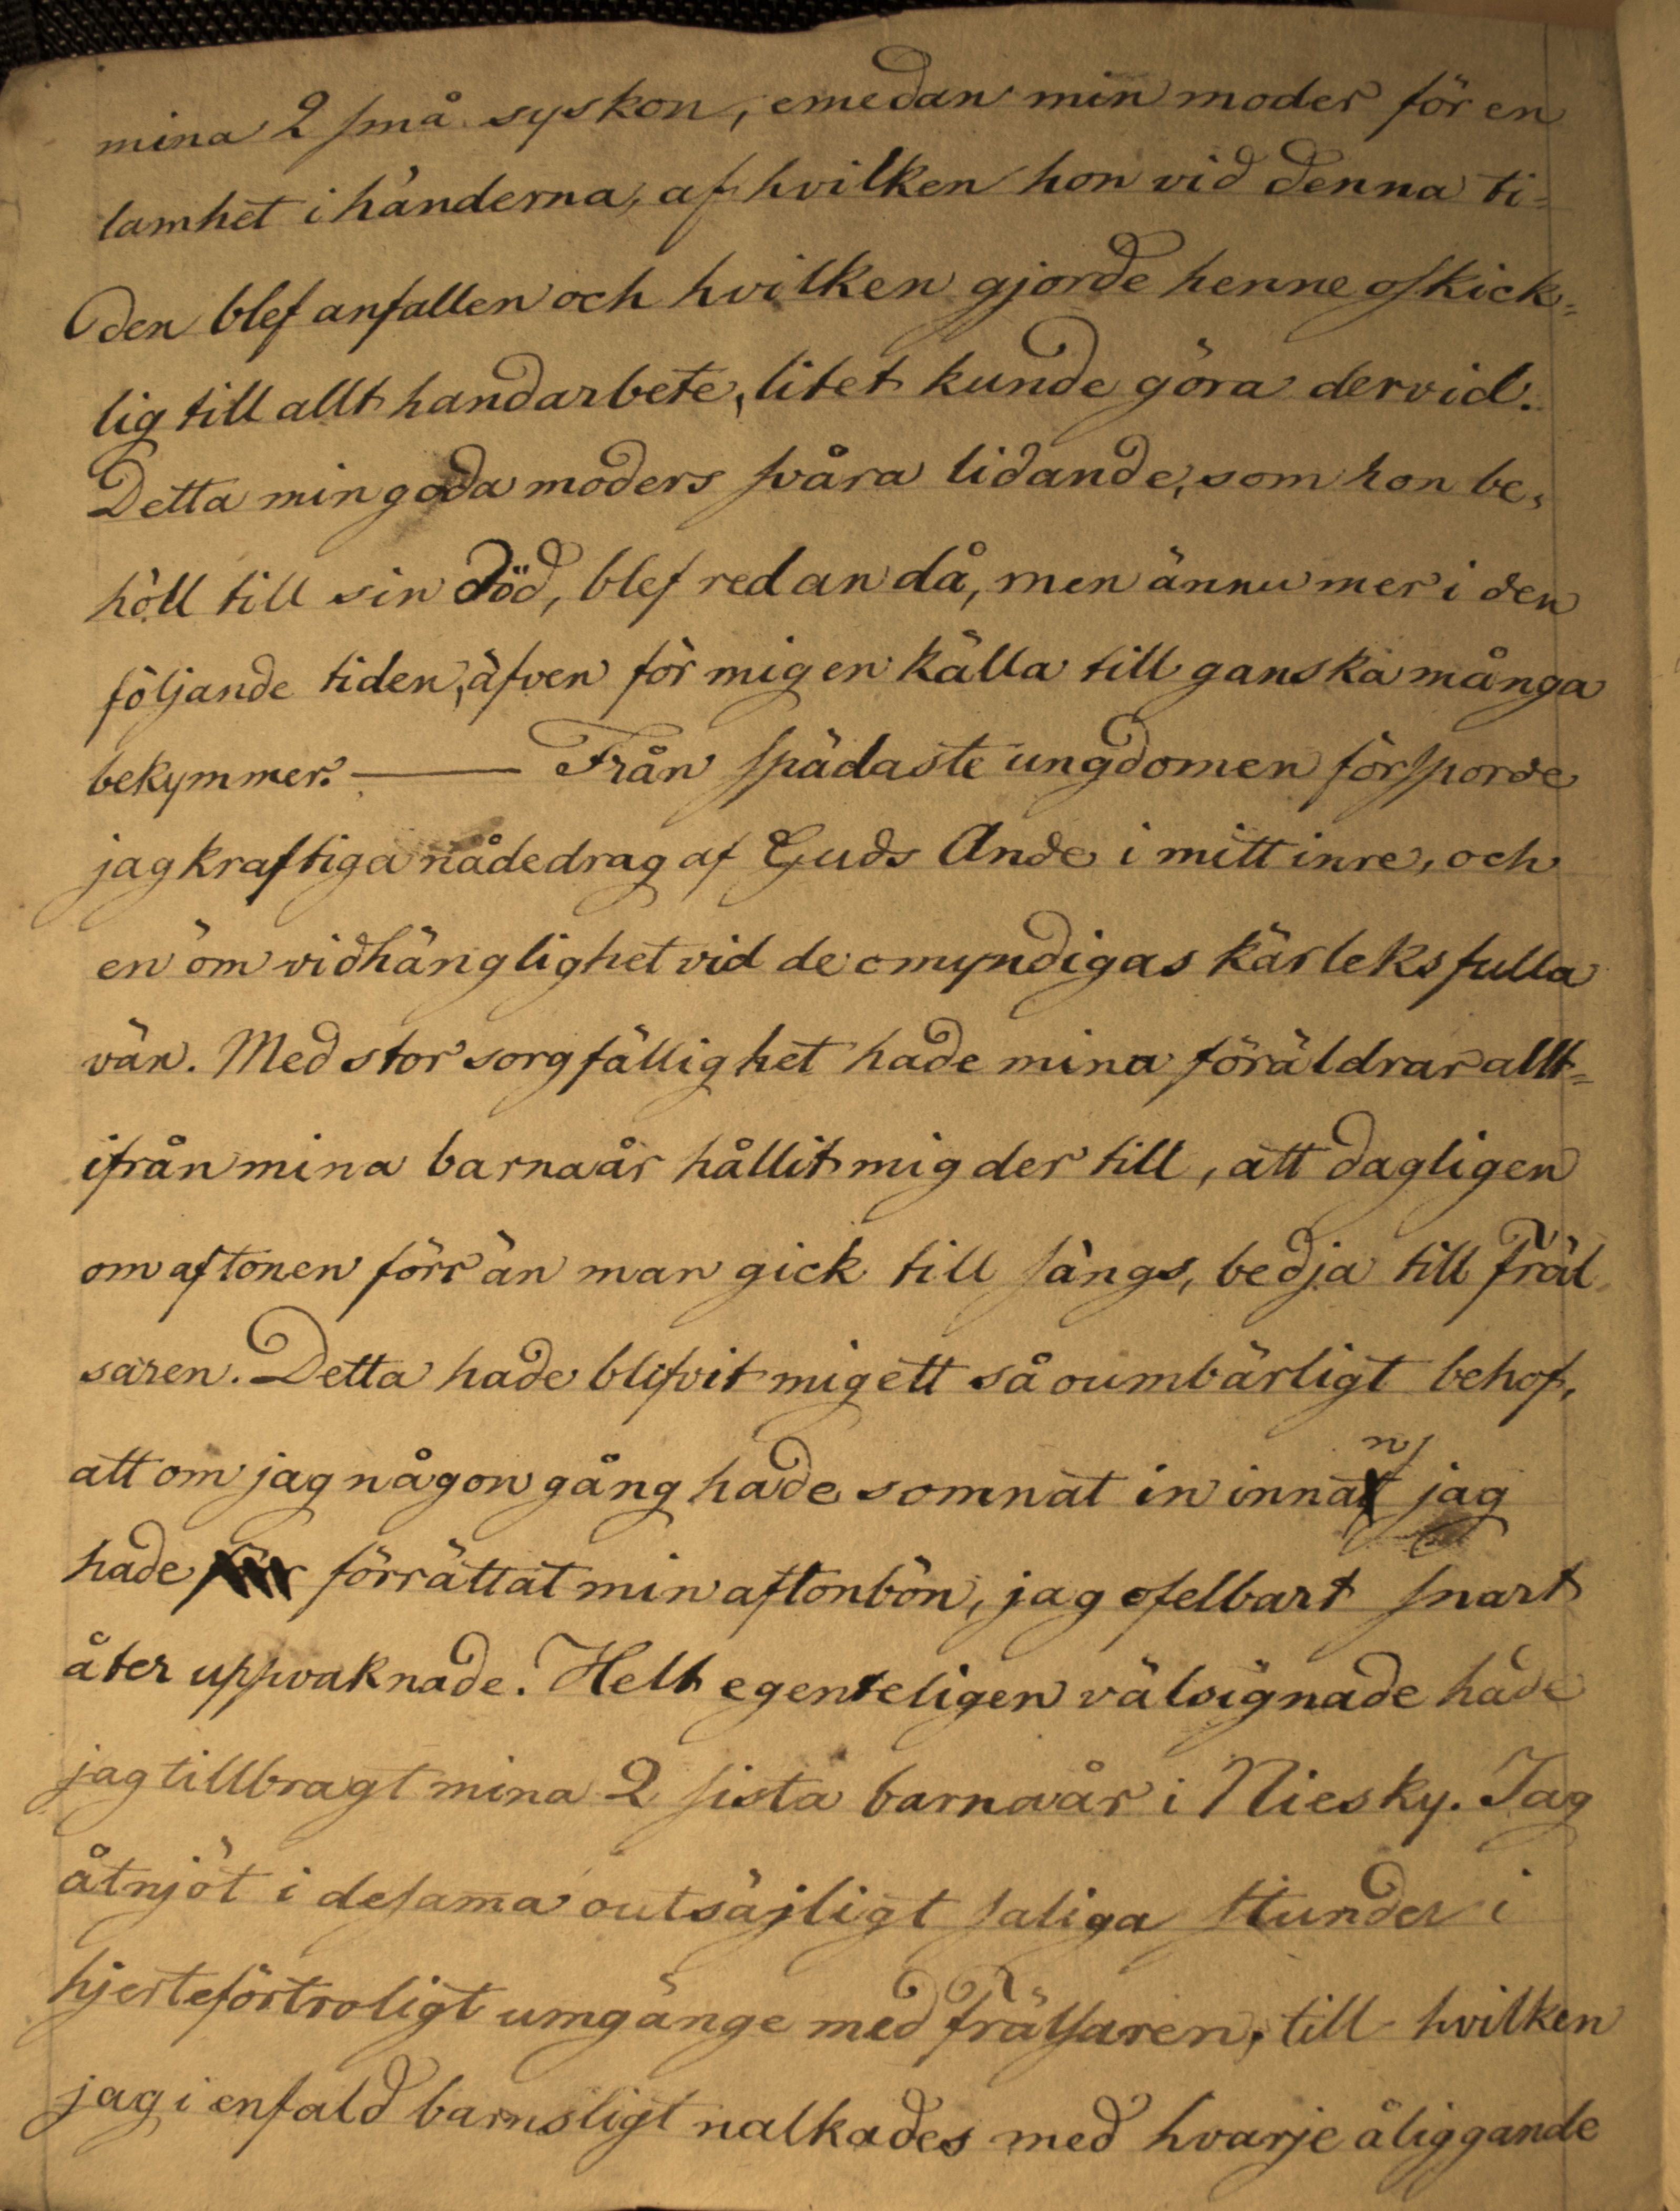 mina 2 små syskon, emedan min moder för en
lamhet i händerna, af hvilken hon vid denna ti=
den blef anfallen och hvilken gjorde henne oskick=
lig till allt handarbete, litet kunde göra dervid.
Detta min goda moders svåra lidande, som hon be=
höll till sin död, blef redan då, men ännu mer i den
följande tiden, äfven för mig en källa till ganska många
bekymmer. — Från spädaste ungdomen försporde
jag kraftiga nådedrag af Guds Ande i mitt inre, och
en öm vidhänglighet vid de omyndigas kärleksfulla
vän. Med stor sorgfällighet hade mina föräldrar allt=
ifrån mina barnaår hållit mig der till, att dagligen
om aftonen förr än man gick till sängs, bedja till Fräl
saren. Detta hade blifvit mig ett så oumbärligt behof,
att om jag någon gång hade somnat in innan jag
hade förrättat min aftonbön, jag ofelbart snart
åter uppvaknade. Helt egenteligen välsignade hade
jag tillbragt mina 2 sista barnaår i Niesky. Jag
åtnjöt i desama outsäjligt saliga stunder i
hjerteförtroligt umgänge med Frälsaren, till hvilken
jag i enfald barnsligt nalkades med hvarje åliggande